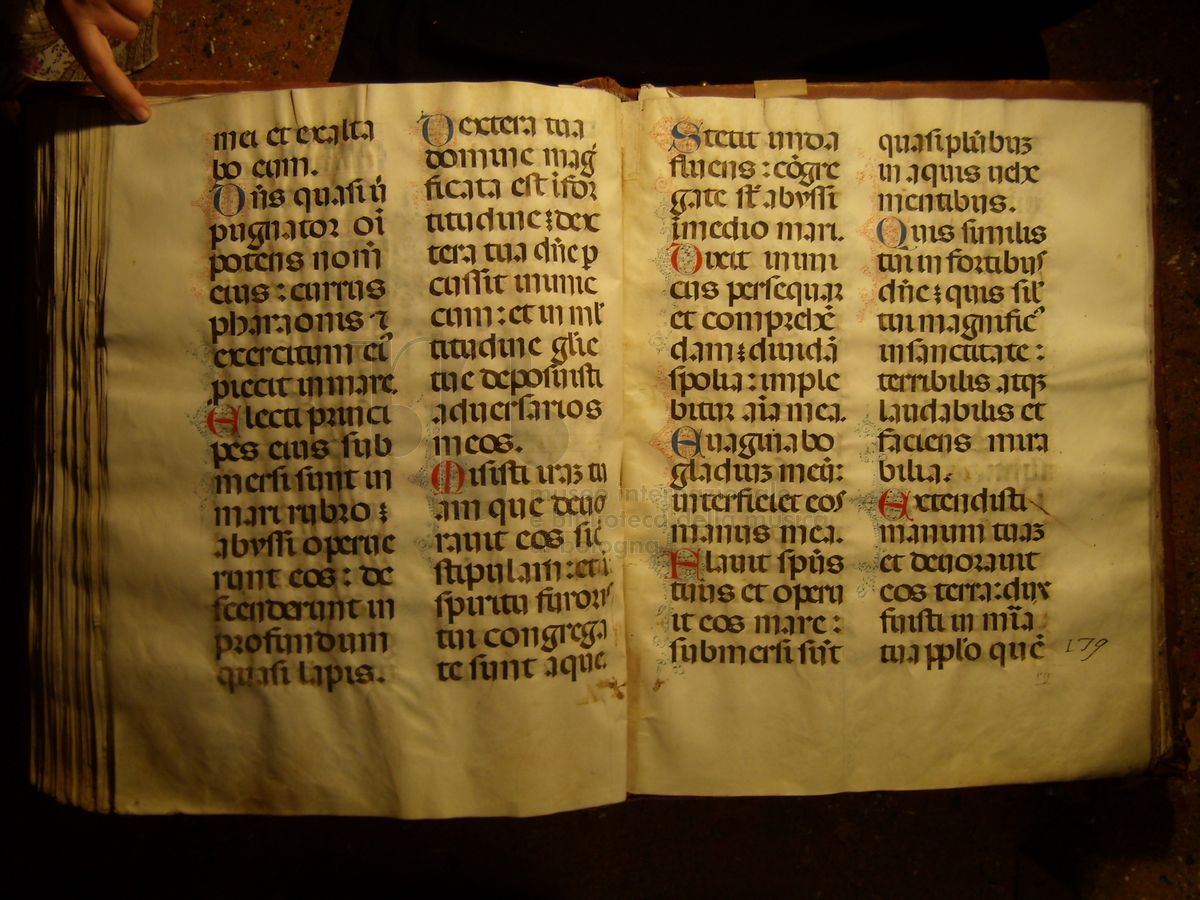 mei et exalta
bo eum.
Dn̄s quasi ū
pugnator oī
potens nom̄
eius : currus
pharaonis ⁊
exercitum eiꝰ
piecit in mare.
Electi princi
pes eius sub
mersi sunt in
mari rubro :
abyssi operue
runt eos : de
scenderunt in
profundum
quasi lapis.
Dextera tua
domine mag
ficata est ī for
titudine : dex
tera tua dn̄e p
cussit inimic
cum : et in ml̄
titudine glīe
tue deposuisti
aduersarios
meos.
Misisti iraꝫ tu
am que deuo
rauit eos sic̄
stipulam : et ī
spiritu furoris
tui congrega
te sunt aque.
Stetit unda
fluens : cōgre
gate st̄ abyssi
ī medio mari.
Dixit inimi
cus persequar
et comprehē
dam : diuidā
spolia : imple
bitur aīa mea.
Euaginabo
gladiuꝫ meū :
interficiet eos
manus mea.
Flauit spūs
tuus et operu
it eos mare :
submersi sūt
quasi plūbuꝫ
in aquis uehe
mentibus.
Quis similis
tui in fortibus
dn̄e : quis sil̄
tui magnificꝰ
in sanctitate :
terribilis atqꝫ
laudabilis et
faciens mira
bilia.
Extendisti
manum tuaꝫ
et deuorauit
eos terra : dux
fuisti in mīa
tua pplo quē
179